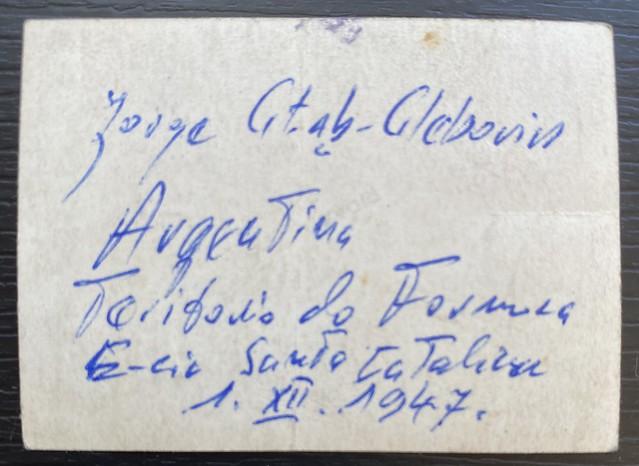 Jorge Głąb-Glebovics
Argentina
Teritorio do Formosa
E-cia Santa Catalina
1. XII. 1947.